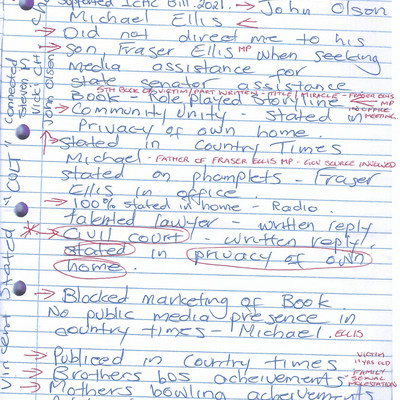 Supported ICHC Bill. 2021. → John Olson
Michael Ellis ←
→ Did not direct me to his
→ son, Fraser Ellis MP when seeking
media assistance for
state senator assistance
5TH BOOK OF VICTIM/PART WRITTEN - TITLE/MIRACLE - FRASER ELLIS
Book - Role played storyline ← MP
IN OFFICE
→ Community Unity - stated in MEETING.
Privacy of own home.
→ stated in Country Times
Michael - FATHER OF FRASER ELLIS MP - GOV SOURCE INVOLVED
stated on phamplets - Fraser
Ellis in office.
→ 100% stated in home - Radio.
talented lawyer - written reply
* → Civil court - written reply/
stated in privacy of own
home.
→ Blocked marketing of Book
No public media presence in
country times - Michael. ELLIS
→ Publiced in Country times VICTIM
11 YRS OLD
→ Brothers bos acheivements - FAMILY
SEXUAL
MOLESTATION
→ Mothers bowling acheivements
connected
Steven M
Vicki CH
John Olsen
Vincent Strated "COLT"